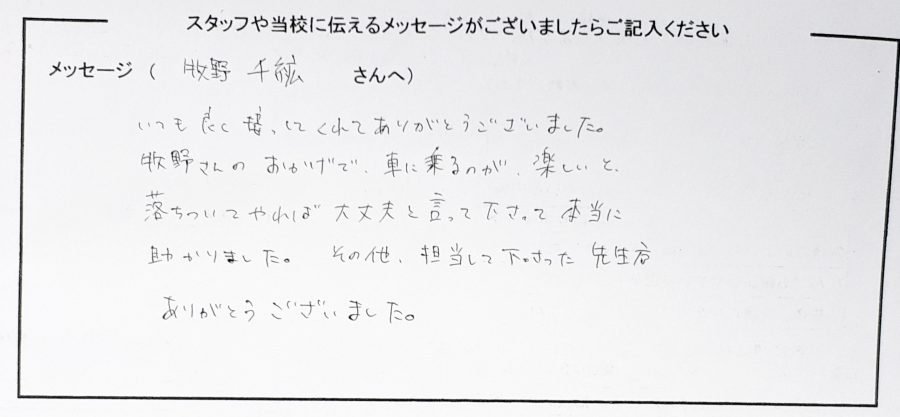 スタッフや当校に伝えるメッセージがございましたらご記入ください
メッセージ ( 牧野 千紘 さんへ)
いつも良く接してくれてありがとうございました。
牧野さんのおかげで、車に乗るのが、楽しいと、
落ちついてやれば大丈夫と言って下さって本当に
助かりました。 その他、担当して下さった先生方
ありがとうございました。